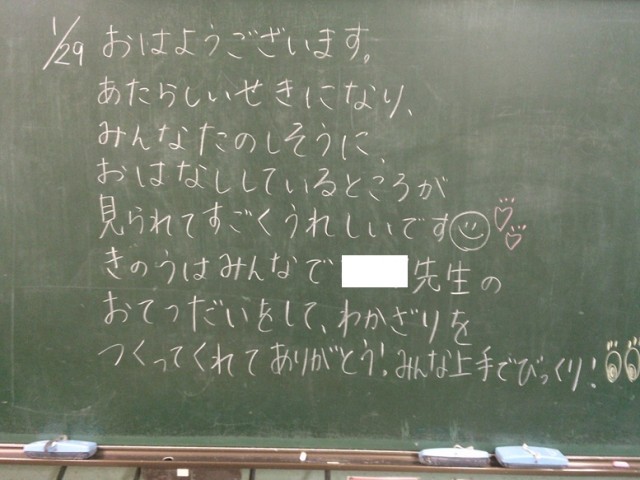 1/29 おはようございます。
あたらしいせきになり、
みんなたのしそうに、
おはなししているところが
見られてすごくうれしいです
きのうはみんなで 先生の
おてつだいをして、わかざりを
つくってくれてありがとう!みんな上手でびっくり!